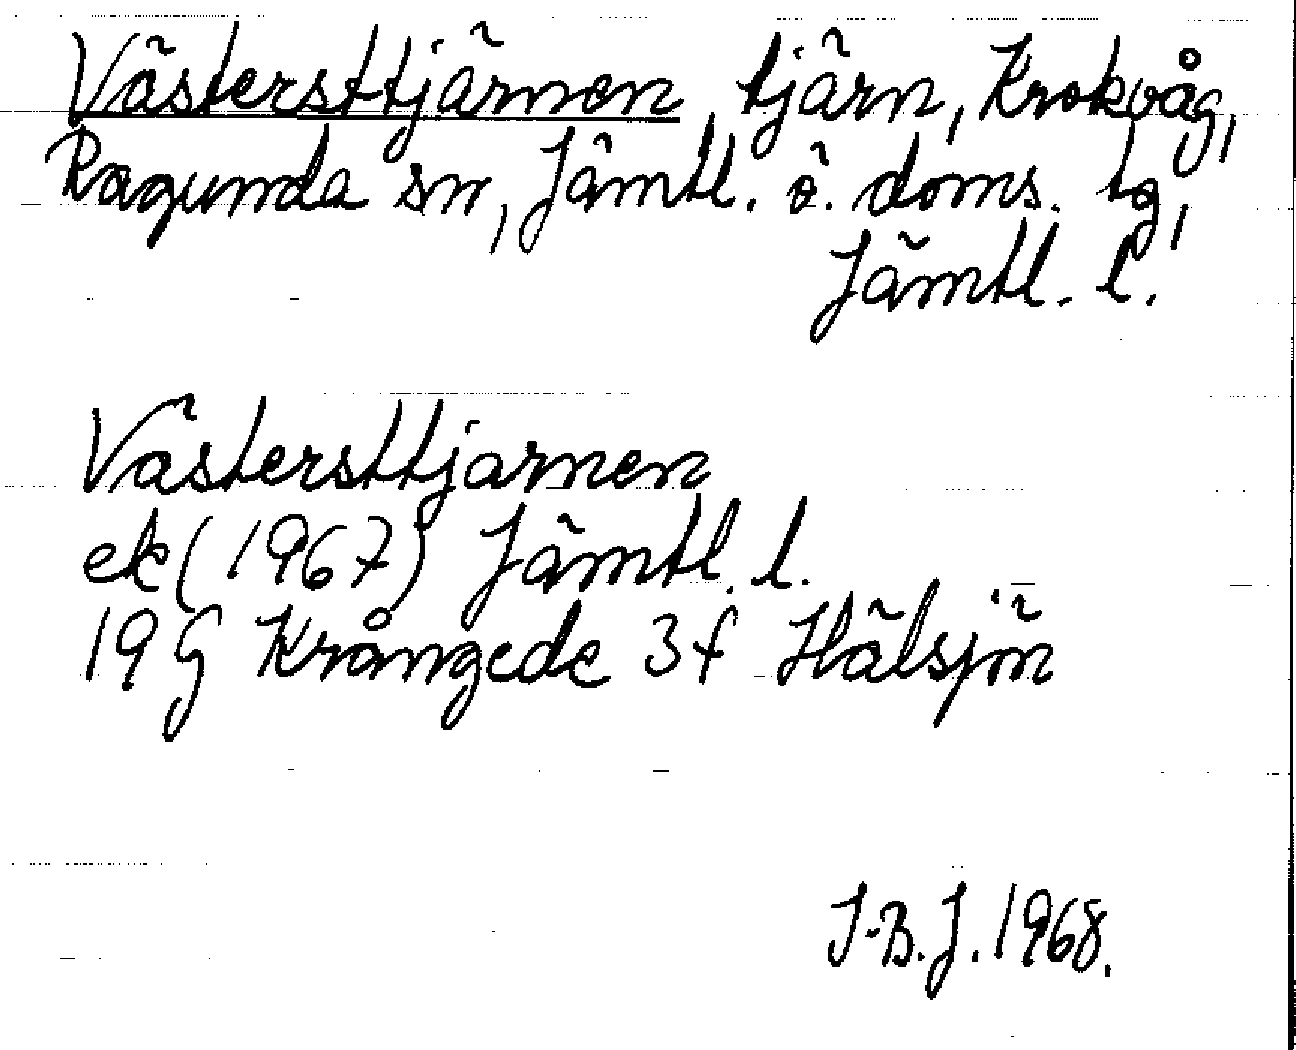 Västersttjärnen, tjärn, Krokvåg,
Ragunda sn, Jämtl. ö. doms. tg,
Jämtl. l.
Västersttjarnen
ek (1967) Jämtl. l.
19 G Krångede 3 f Hälsjön
J-B. J. 1968.